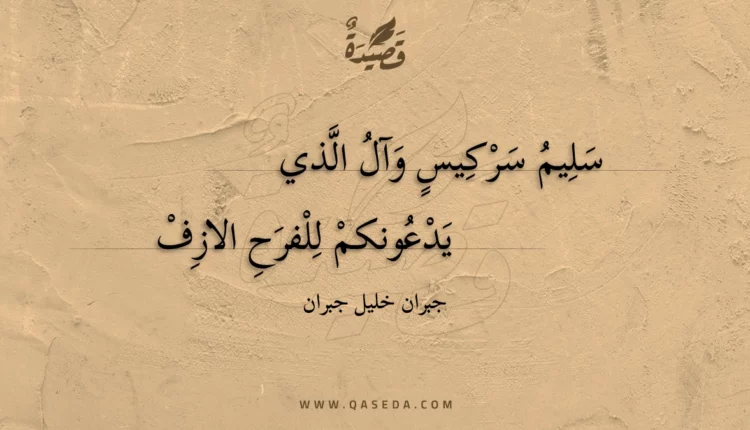 قَصِيْدَةٌ
سَلِيمُ سَرْكِيسٍ وَآلُ الَّذي
يَدْعُونكمْ لِلْفرَحِ الازِفْ
جبران خليل جبران
WWW.QASEDA.COM